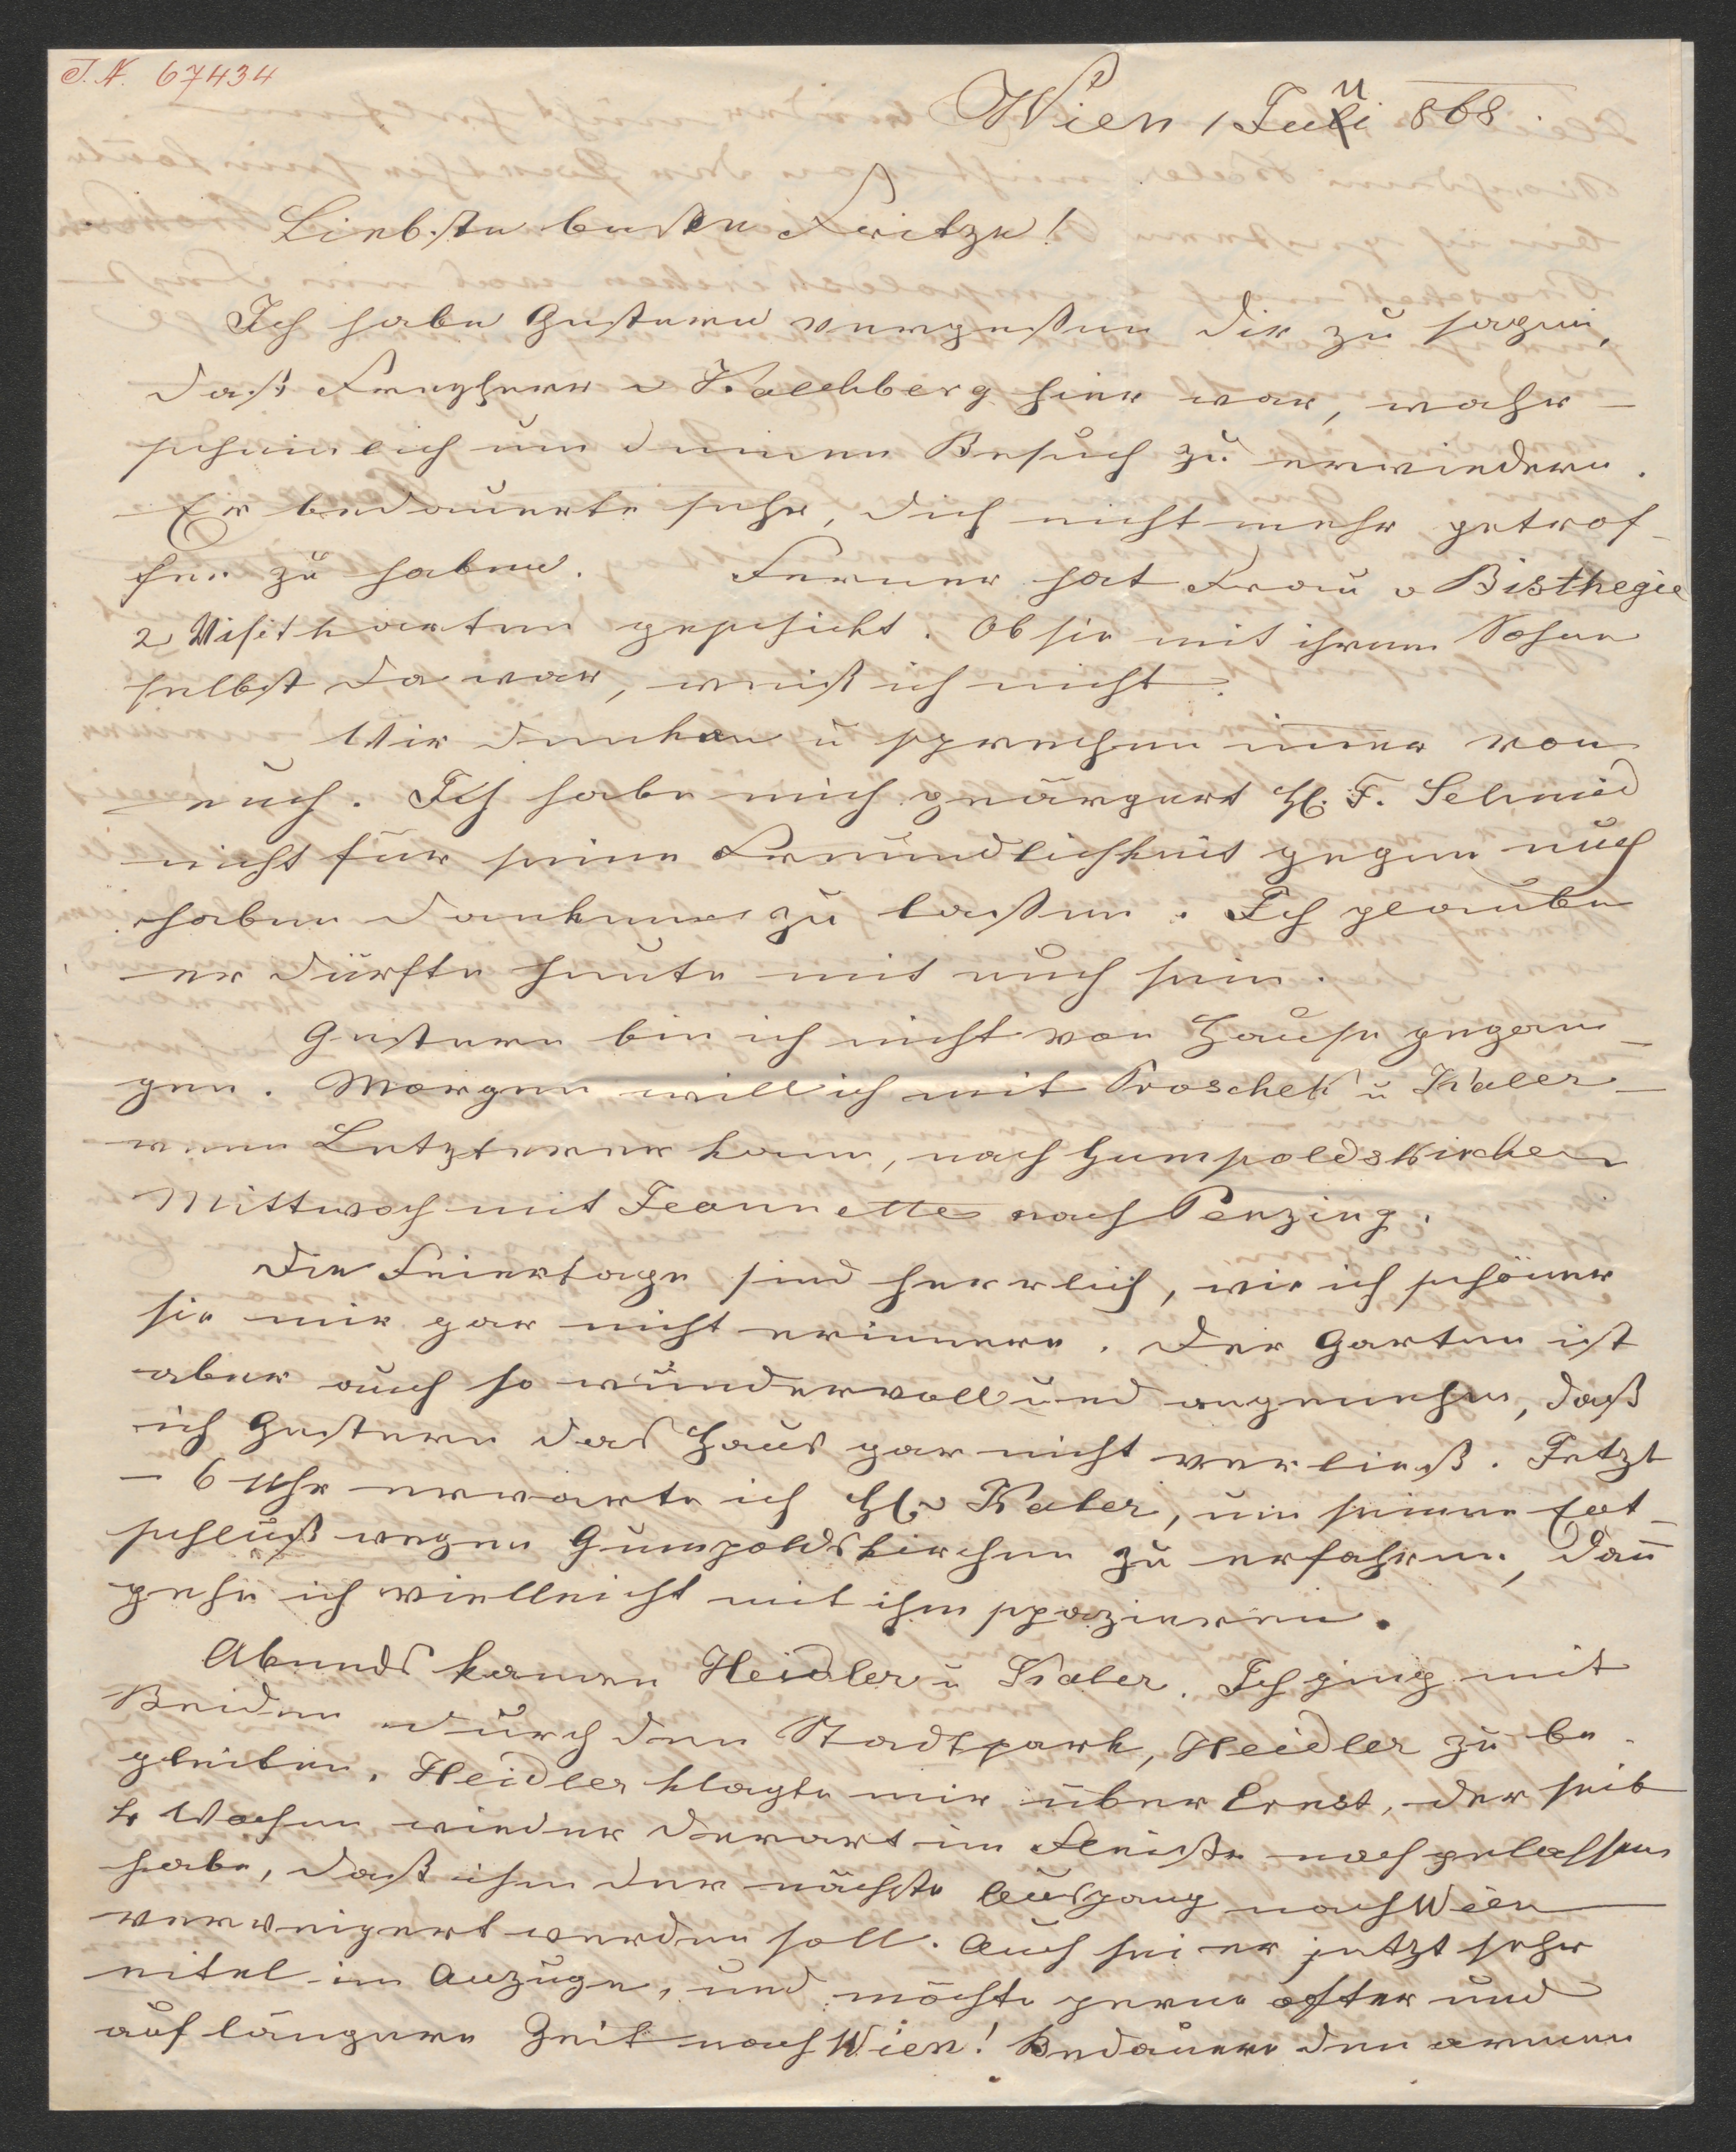 I.N. 67434
Wien 1 Juni 868.
Liebste beste Fritze!
Ich habe Gestern vergeßen dir zu sagen,
daß Freyherr v Kalchberg hier war, wahr-
scheinlich um deinen Besuch zu erwiedern.
Er bedauerte sehr, dich nicht mehr getrof-
fen zu haben. Ferner hat Frau v
2 Visitkarten geschickt. Ob sie mit ihrem Sohne
selbst da war, weiß ich nicht.
Wir denken u sprechen imer von
euch. Ich habe mich geärgert H. F. Schmid
nicht für seine Freundlichkeit gegen euch
haben danken zu laßen. Ich glaube
er dürfte heute mit euch sein.
Gestern bin ich nicht von Hause gegan-
gen. Morgen will ich mit Proschek u Kaler-
wenn Letzterer kann, nach Gumpoldskirchen
Mittwoch mit Jeannette nach Penzing.
Die Feiertage sind herrlich, wie ich schöner
sie mir gar nicht erinnere. Der Garten ist
aber auch so wundervoll und angenehm, daß
ich Gestern das Haus gar nicht verließ. Jetzt
- 6 Uhr erwarte ich H v Kaler, um seinen Ent-
schluß wegen Gumpoldskirchen zu erfahren, dan
gehe ich vielleicht mit ihm spazieren.
Abends kamen Heidler u Kaler. Ich ging mit
Beiden durch den Stadtpark, Heidler zu be-
gleiten. Heidler klagte mir über Ernst, der seit
4 Wochen wieder derart im Fleiße nachgelassen
habe, daß ihm der nächste Ausgang nach Wien
verweigert werden soll. Auch sei er jetzt sehr
eitel im Anzuge, und möchte gerne öfter und
auf längere Zeit nach Wien! Bedauere den armen